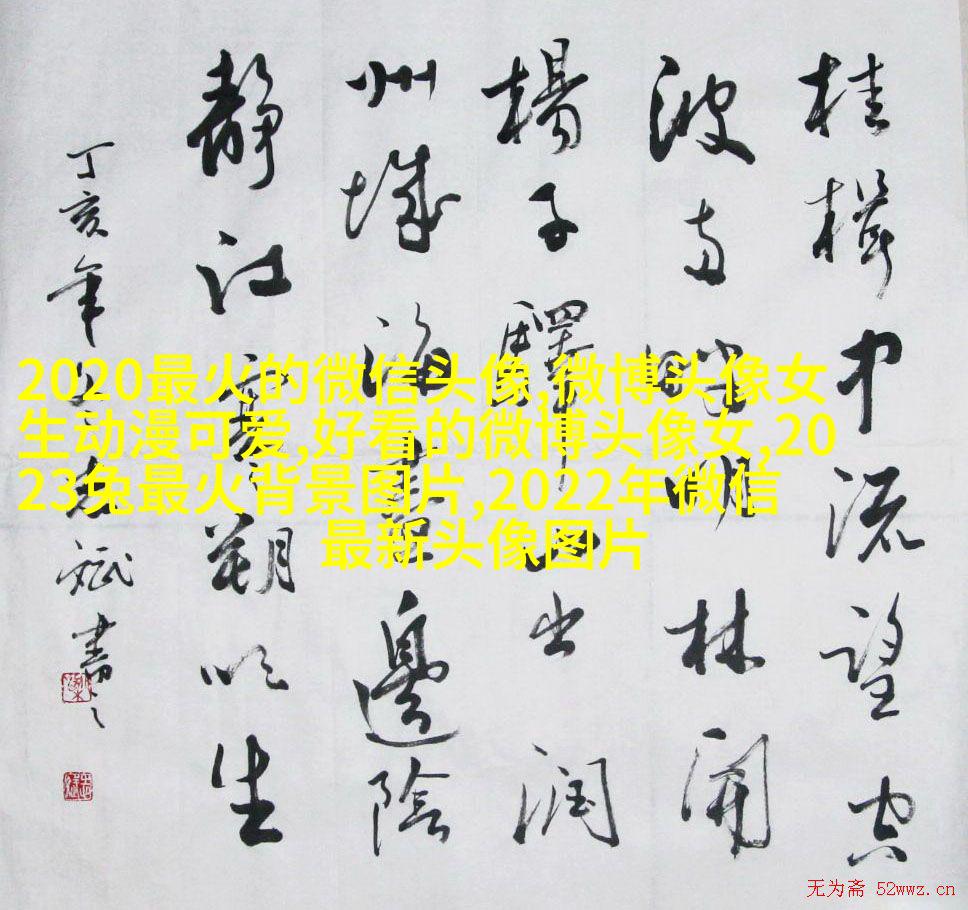 桂楫中流望空
波两畔明林開
楊子驛山出润
州城海盡邊陰
静江寒朔吹生
丁亥年斌書
2020最火的微信头像,微博头像女
生动漫可爱,好看的微博头像女,20
23兔最火背景图片,2022年微信
最新头像图片
无为斋 52wwz.cn